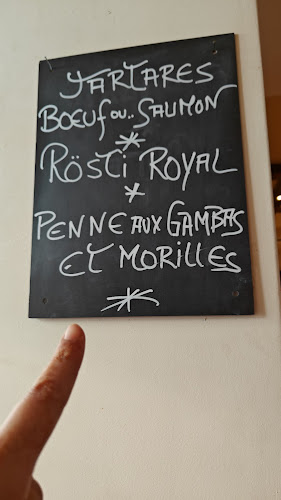 TARTARES
BŒUF OU.. SAUMON
*
RÖSTI ROYAL
*
PENNE AUX GAMBAS
ET MORILLES
*